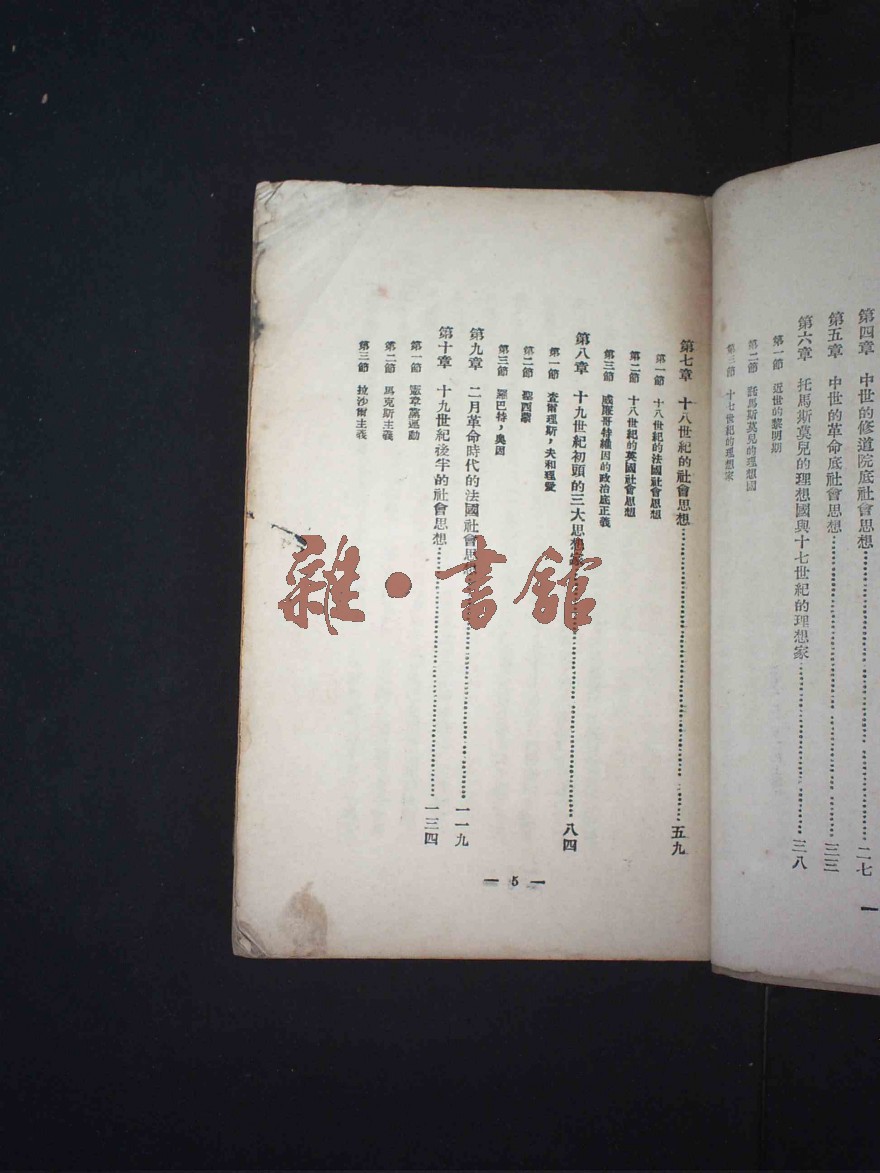 第四章 中世的修道院底社會思想……二七
第五章 中世的革命底社會思想……三三
第六章 托馬斯莫兒的理想國與十七世紀的理想家……三八
第一節 近世的黎明期
第二節 託馬斯莫兒的理想國
第三節 十七世紀的理想家
第七章 十八世紀的社會思想……五九
第一節 十八世紀的法國社會思想
第二節 十八世紀的英國社會思想
第三節 威廉哥特維因的政治底正義
第八章 十九世紀初頭的三大思想家……八四
第一節 査爾理斯，夫和理愛
第二節 聖西蒙
第三節 羅巴特，奧因
第九章 二月革命時代的法國社會思想……一一九
第十章 十九世紀後半的社會思想……一三四
第一節 憲章黨運動
第二節 馬克斯主義
第三節 拉沙爾主義
— 5 —
雜·書館